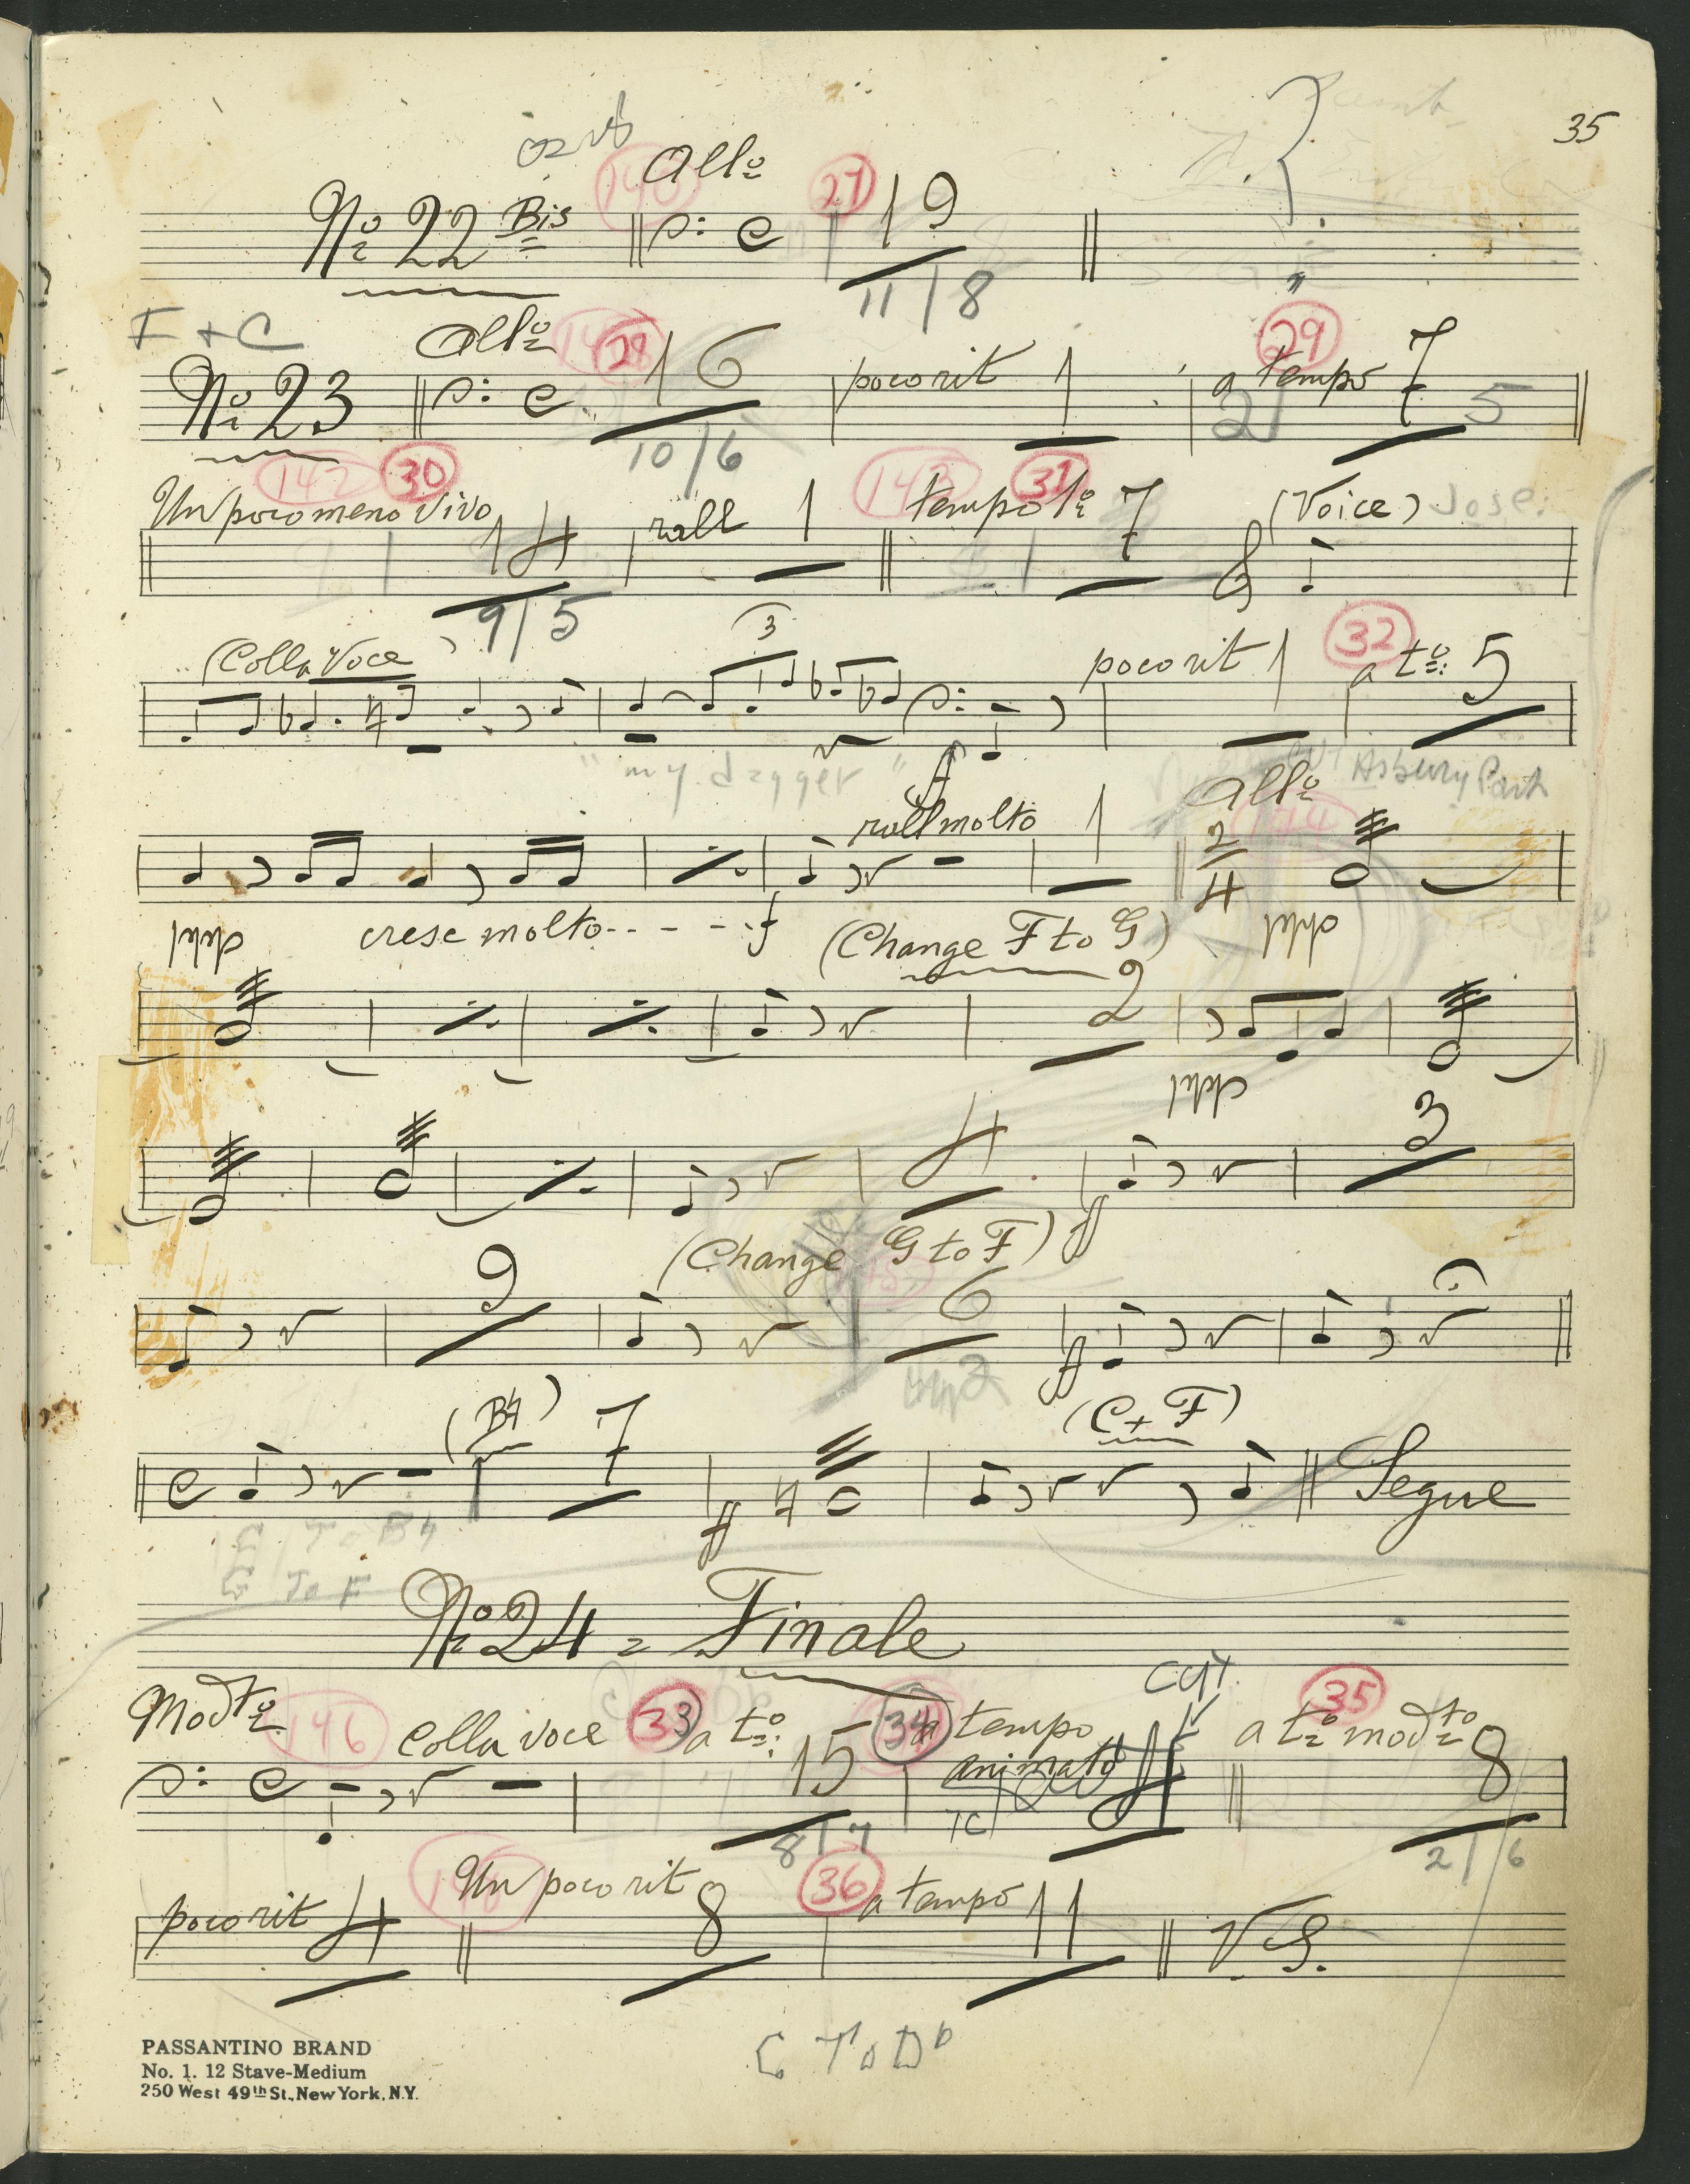 35
Allo 27 19
No 22 Bis
11 | 8
F + C
Allo 16 poco rit 1 29 a tempo 7
No 23 2 5
10 | 6
142 30 143 31
Un poco meno vivo 14 rall 1 tempo 1o 7 (Voice) Jose:
9 | 5
(Colla Voce) 3 poco rit 1 32 a to: 5
"my dagger" f Asbury Park
rall molto 1 Allo 144
2/4
ppp cresc molto - - - - f (Change F to G) ppp
2
ppp
4 3
(Change G to F) ff
9 6
ff
(B♮) 7 (C + F)
ff Segue
G To B♮
G To F
No 24 = Finale
CUT
Modto 146 colla voce 33 a to: 15 34 a tempo animato 4 35 a to modto 8
8 | 7 2 | 6
poco rit 4 Un poco rit 8 36 a tempo 11 V.S.
C To D♭
PASSANTINO BRAND
No. 1. 12 Stave-Medium
250 West 49th St., New York, N.Y.